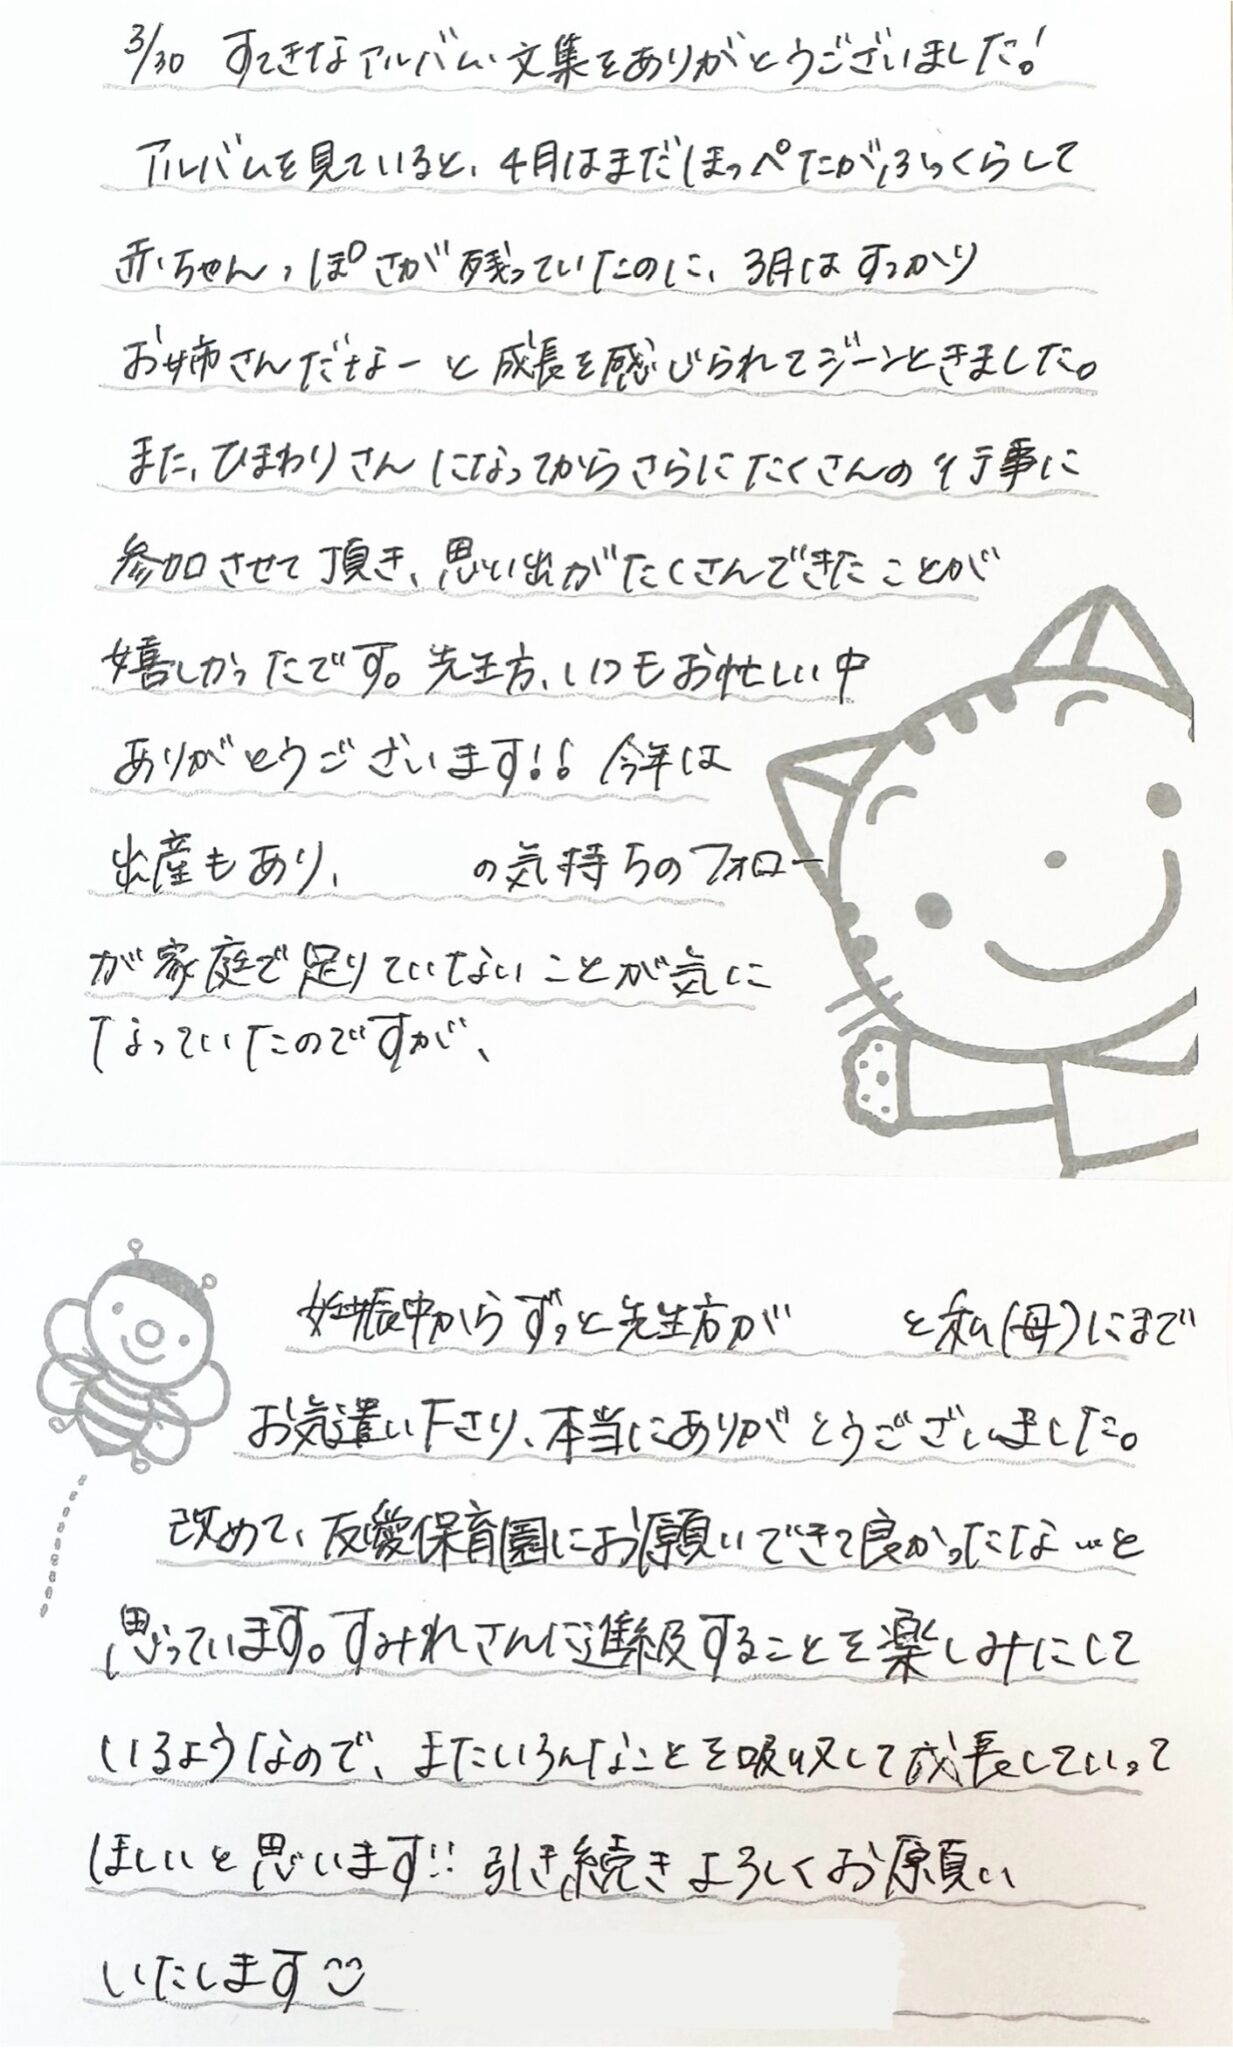 3/30 すてきなアルバム・文集をありがとうございました!
アルバムを見ていると、4月はまだほっぺたがふっくらして
赤ちゃんっぽさが残っていたのに、3月はすっかり
お姉さんだなーと成長を感じられてジーンときました。
また、ひまわりさんになってからさらにたくさんの行事に
参加させて頂き、思い出がたくさんできたことが
嬉しかったです。先生方、いつもお忙しい中
ありがとうございます!! 今年は
出産もあり、 の気持ちのフォロー
が家庭で足りていないことが気に
なっていたのですが、
妊娠中からずっと先生方が と私(母)にまで
お気遣い下さり、本当にありがとうございました。
改めて、友愛保育園にお願いできて良かったな…と
思っています。すみれさんに進級することを楽しみにして
いるようなので、またいろんなことを吸収して成長していって
ほしいと思います!! 引き続きよろしくお願い
いたします